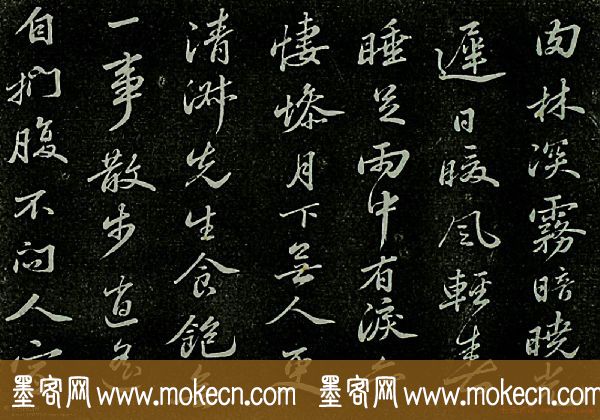 肉林深霧暗曉光
遲日暖風輕春
睡足雨中有淚
悽愴月下無人更
清淑先生食飽
一事散步逍遙
自捫腹不問人家
墨客网 www.mokecn.com 墨客网 www.mokecn.com